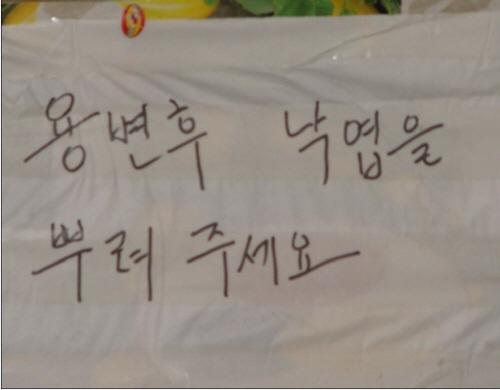 용변후 낙엽을
뿌려 주세요